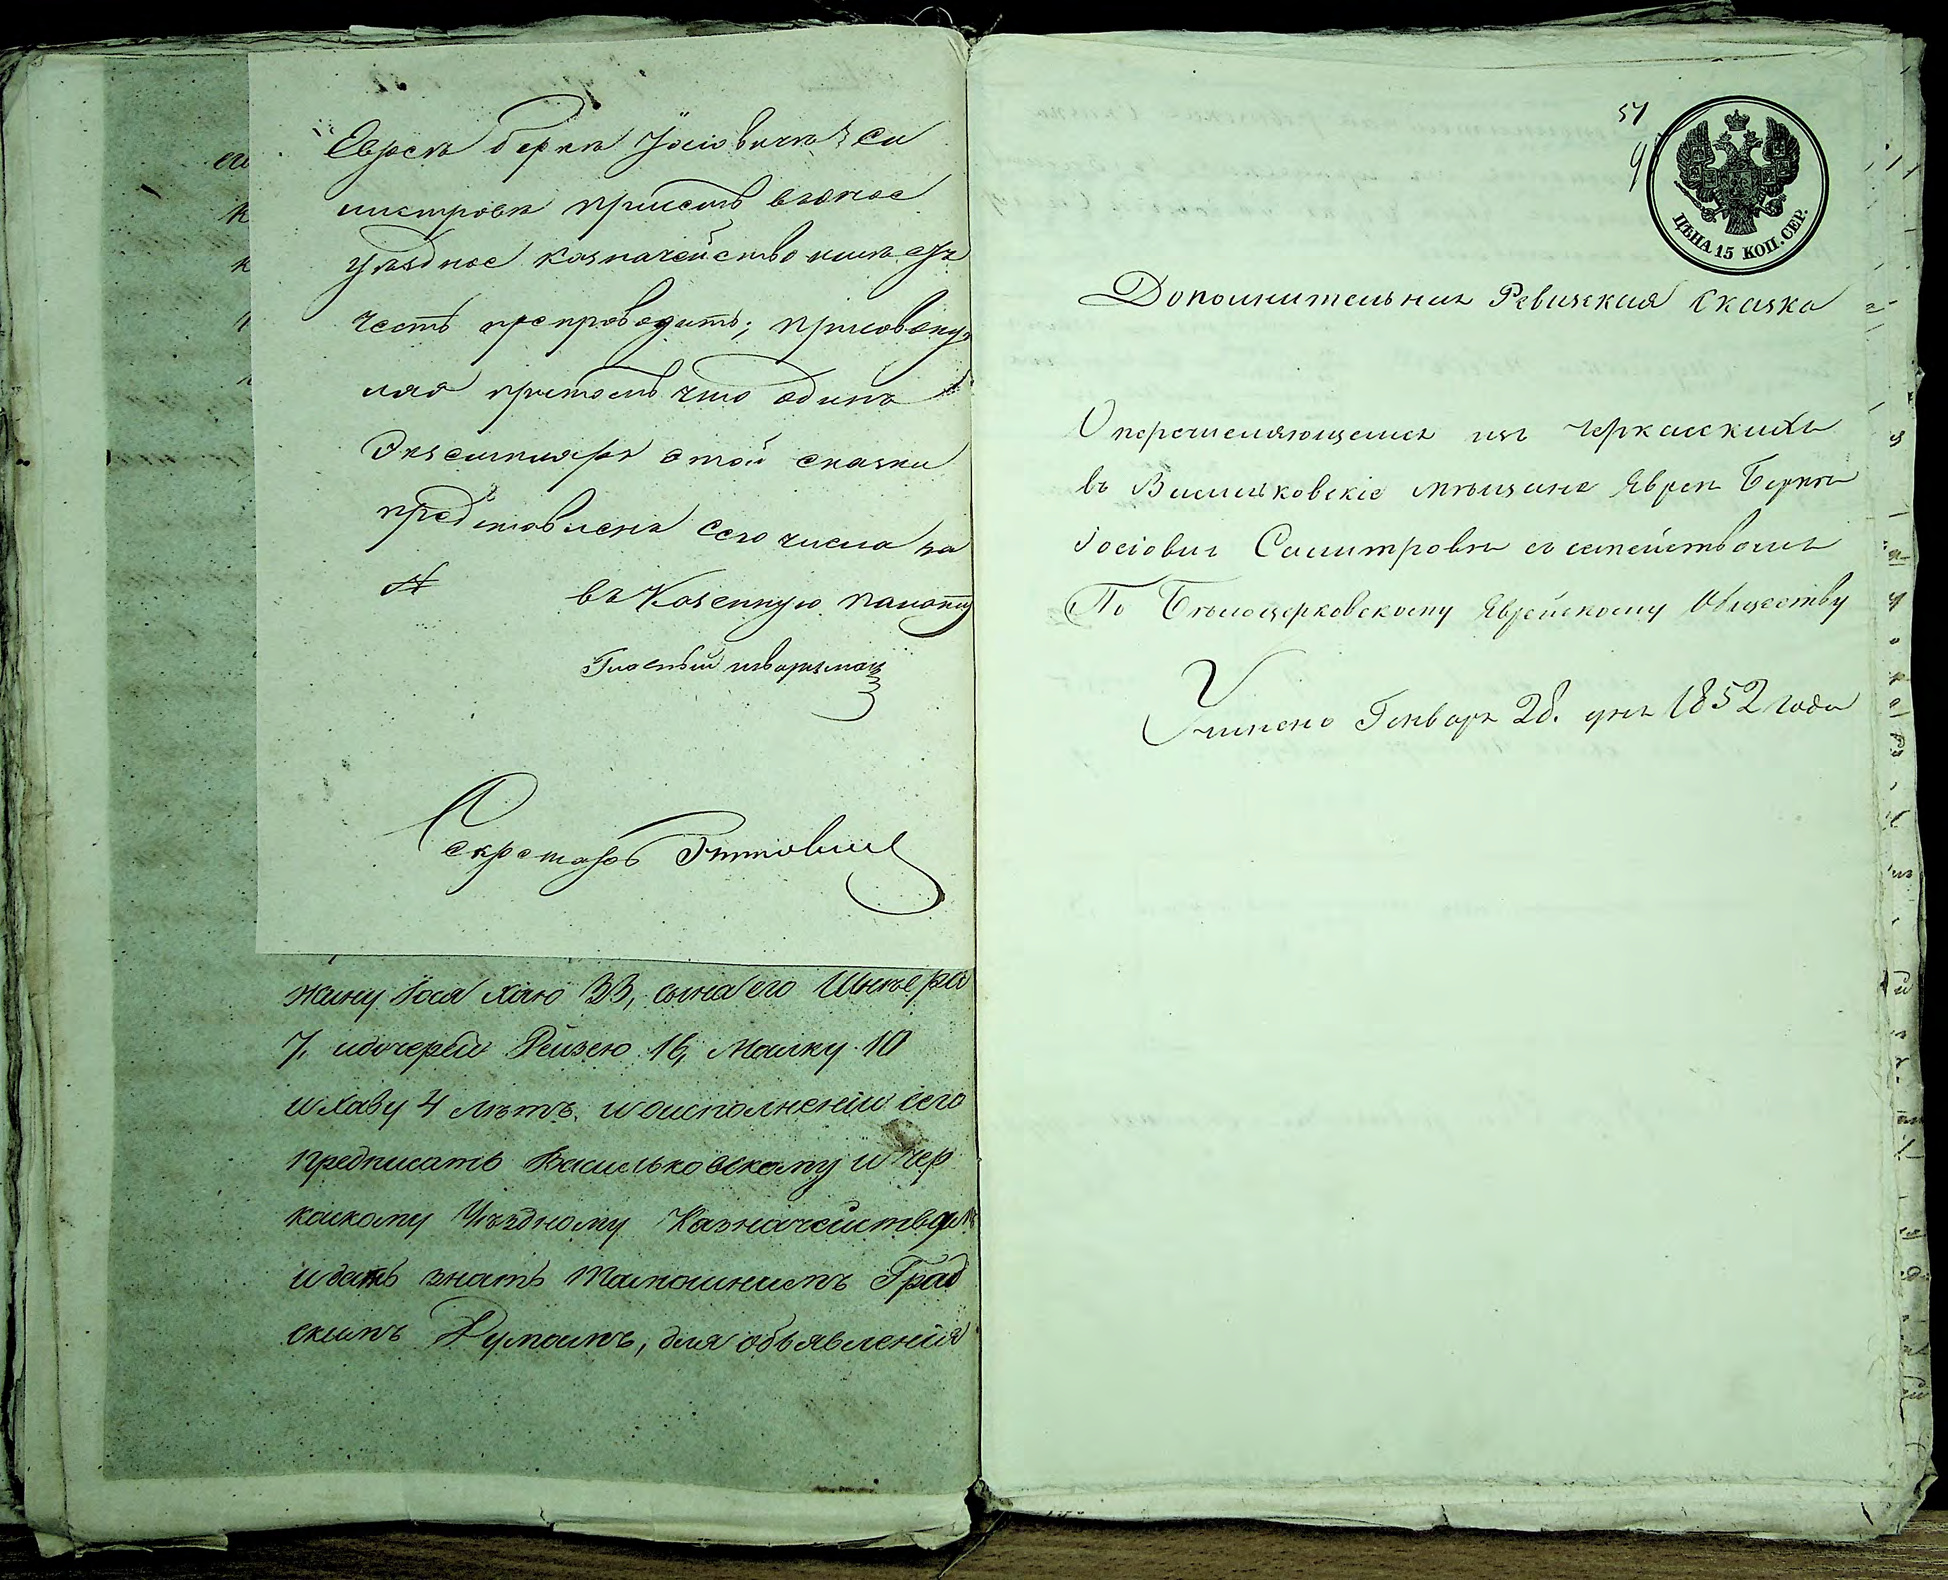 Еврея Берка Іосіовича Са
митровъ присемъ въ оное
уѣздное казначейство имѣетъ
честь препроводить; присовокуп
ляя притомъ что одинъ
Экземпляръ этой сказки
представленъ сего числа за
№ въ Казенную палату
Гласный
Секретарь
жену Іося Хаю 33, сына его
7, и дочерей Рейзею 16, Малку 10
и Хаву 4 лѣтъ, и о исполненіи сего
предписать Васильковскому и Чер
каскому Уѣздному Казначействамъ
и дать знать тамошнимъ Град
скимъ Думамъ, для объявленія
его
57
ЦѢНА 15 КОП. СЕР.
Дополнительная Ревизская Сказка
О перечисляющемся изъ Черкасскихъ
въ Васильковскіе мѣщане Еврея Берка
Іосіович Самитровъ съ семействомъ
По Бѣлоцерковскому Еврейскому Обществу
Учинено Генваря 28. дня 1852 года